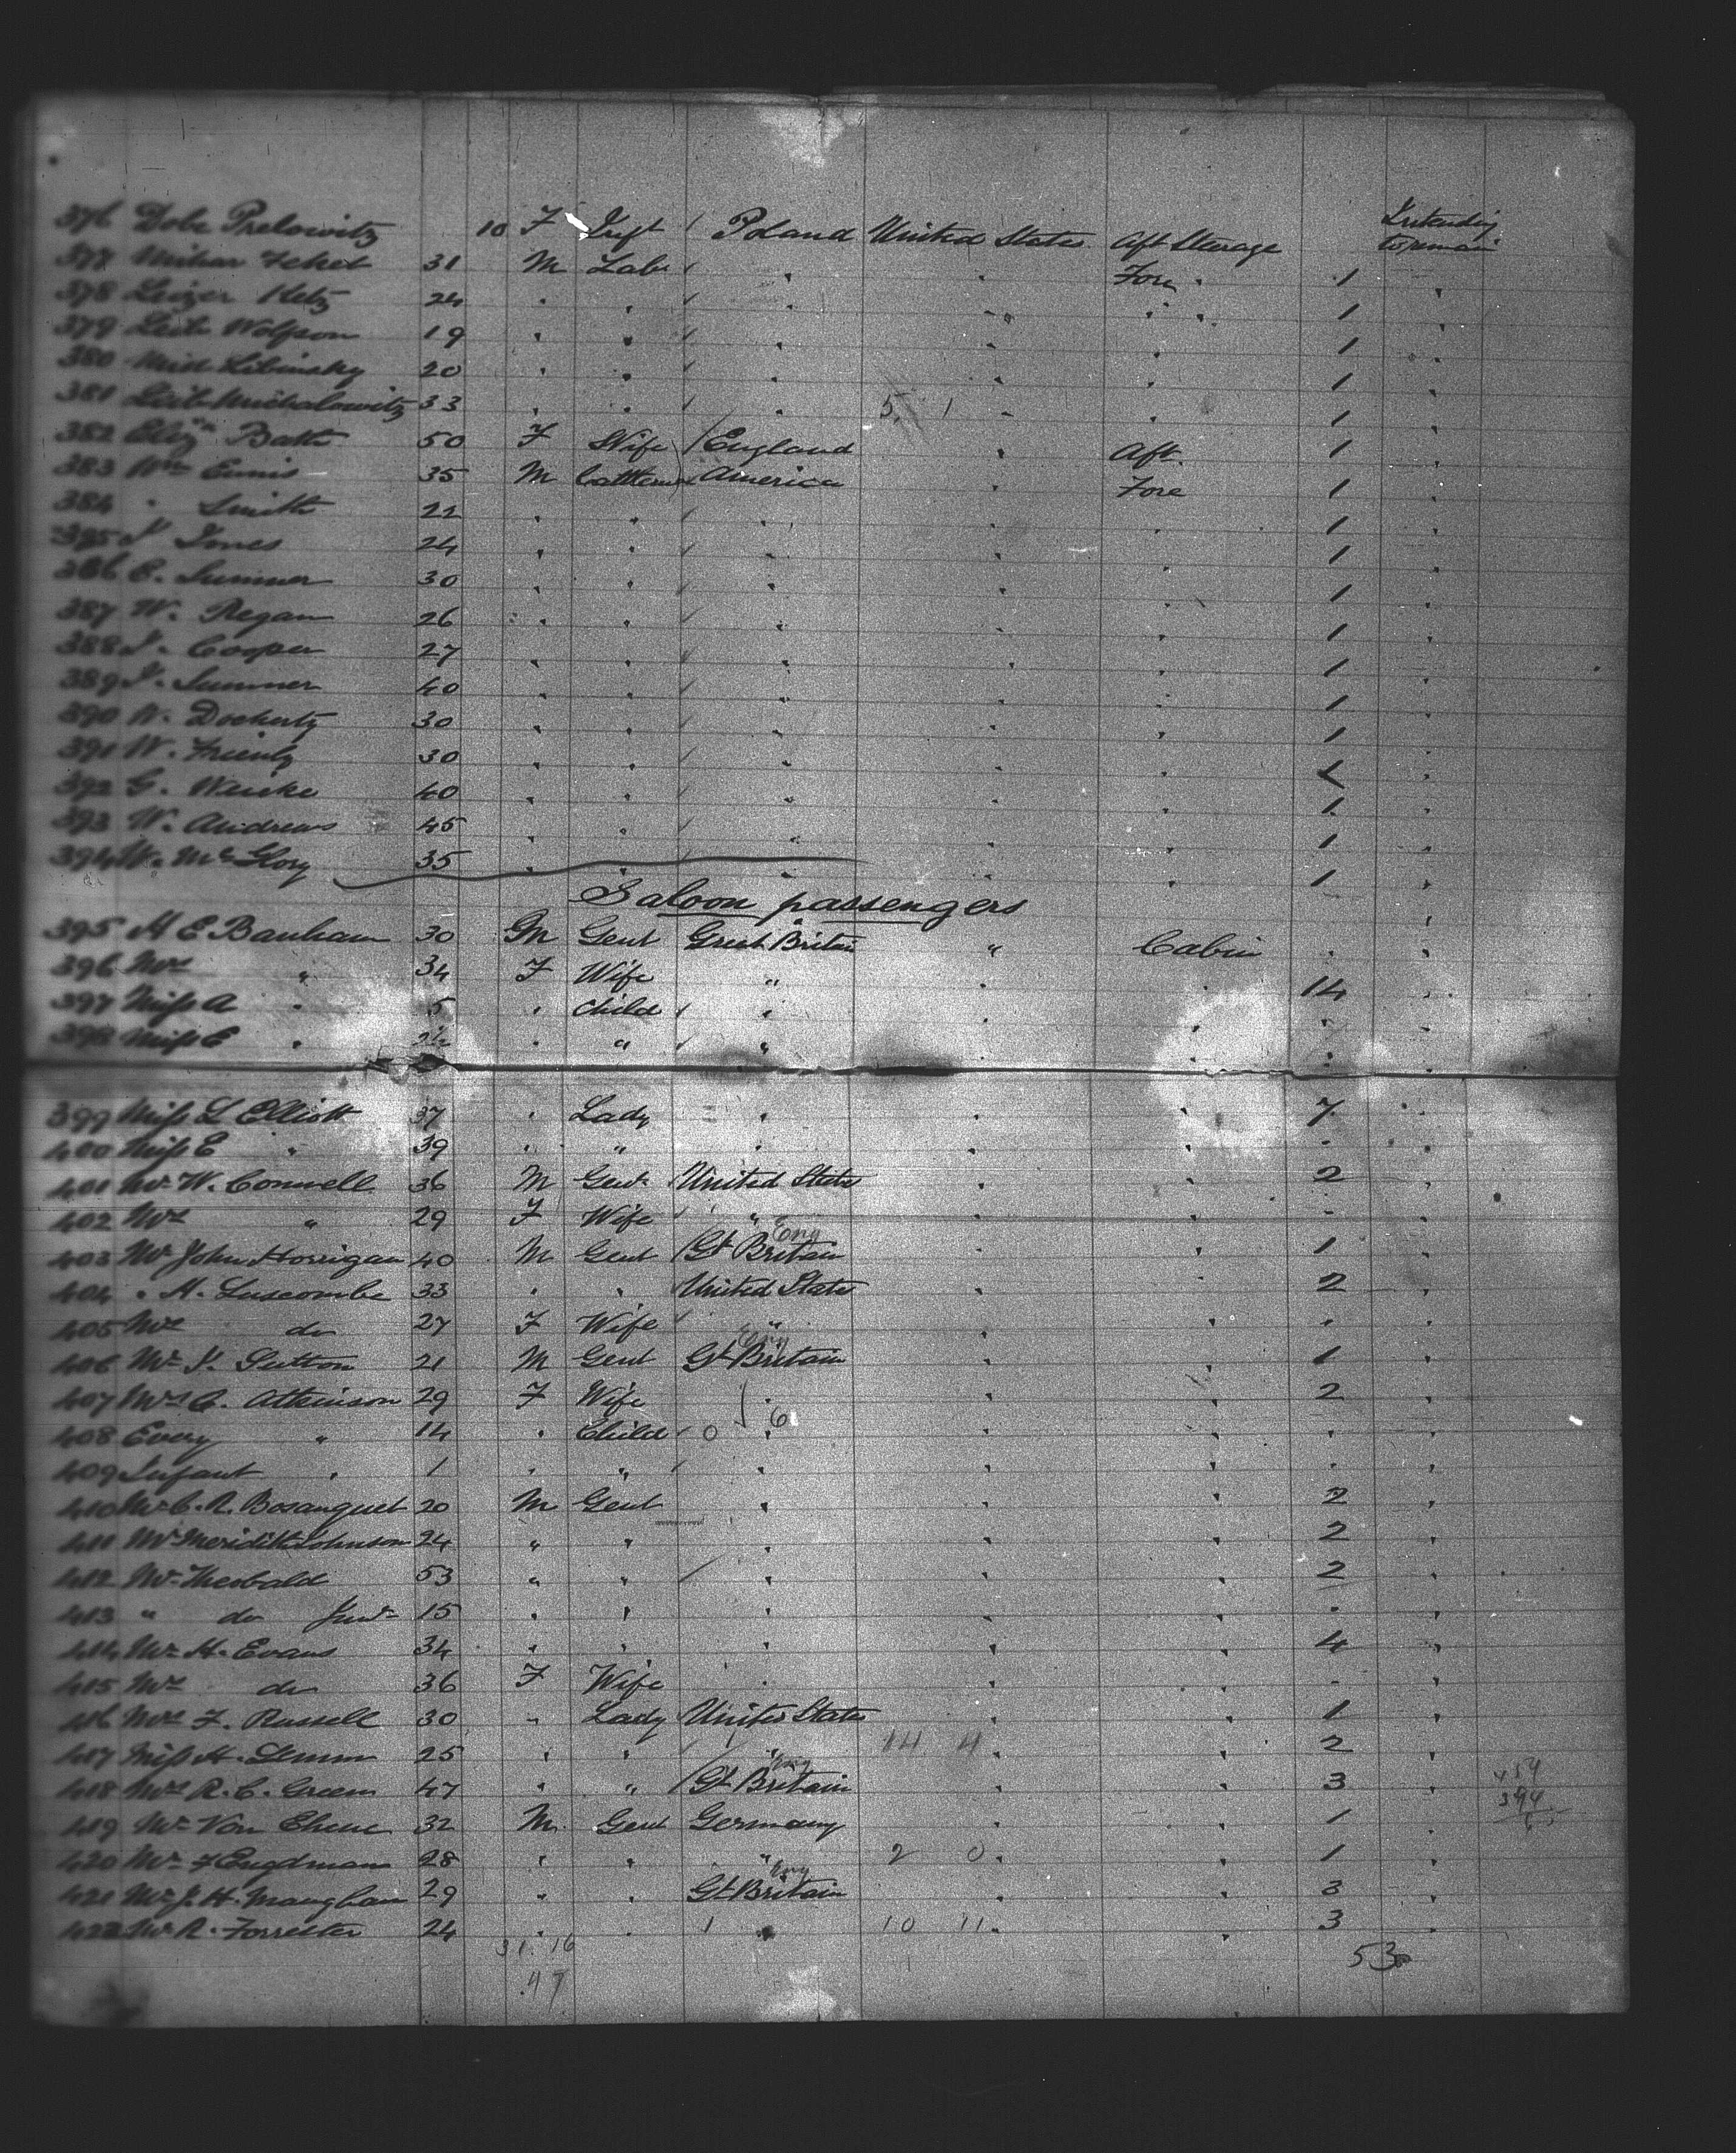 376 Dobe Prelowitz 10 F Inft / Poland United States Aft Sterage Intending to remain
377 31 M Labr / " " Fore " 1 "
378 Leizer Ketz 24 " " / " " " " 1 "
379 Leib Wolfson 19 " " / " " " 1 "
380 Libinsky 20 " " / " " " 1 "
381 Leib Michalowitz 33 " " / " 5 1 " " 1 "
382 Eliz'th Bath 50 F Wife / England " Aft 1 "
383 Wm Ennis 35 M Cattlemen America " Fore 1 "
384 " Smith 22 " " / " " " 1 "
385 J Jones 24 " " / " " " 1 "
386 E. Sumner 30 " " / " " " 1 "
387 W. Regan 26 " " / " " " 1 "
388 J. Cooper 27 " " / " " " 1 "
389 J. Sumner 40 " " / " " " 1 "
390 W. Docherty 30 " " / " " " 1 "
391 W. 30 " " / " " " 1 "
392 G. 40 " " / " " " 1 "
393 W. Andrews 45 " " / " " " 1 "
394 W. McGlory 35 " " " " " 1 "
Saloon passengers
395 H E Banham 30 M Gent Great Britain " Cabin " "
396 Mrs " 34 F Wife " " " 14 "
397 Miss A " 5 " Child / " " " " "
398 Miss E " " " / " " " " "
399 Miss L Elliott 37 " Lady " " " 7 "
400 Miss E " 39 " " " " " " "
401 Mr W. Conwell 36 M Gent United States " " 2 "
402 Mrs " 29 F Wife / " " " " "
403 Mr John Horrigan 40 M Gent / Gt Britain Eng " " 1 "
404 " H. Luscombe 33 " " United States " " 2 "
405 Mrs do 27 F Wife / " " " " "
406 Mr J. Sutton 21 M Gent Gt Britain Eng " " 1 "
407 Mrs C. Atkinson 29 F Wife " " " 2 "
408 Every " 14 " Child / 0 6 " " " " "
409 Infant " 1 " " / " " " " "
410 Mr C. R. Bosanquet 20 M Gent " " " 2 "
411 Mr Meridith Johnson 24 " " " " " 2 "
412 Mr Theobald 53 " " / " " " 2 "
413 " do Junr 15 " " " " " " "
414 Mr H. Evans 34 " " " " " 4 "
415 Mrs do 36 F Wife " " " " "
416 Mrs F. Russell 30 " Lady United States " " 1 "
417 Miss H. Lemm 25 " " / " 14 4 " " 2 "
418 Mrs R. C. Green 47 " " / Gt Britain Eng " " 3 "
419 Mr Von 32 M Gent Germany " " 1 "
420 Mr F Engdman 28 " " " 2 0 " " 1 "
421 Mr J. H. Maugham 29 " " Gt Britain Eng " " 3 "
422 Mr R. Forrester 24 " " 1 " 10 11 " " 3 "
31 16
47
53